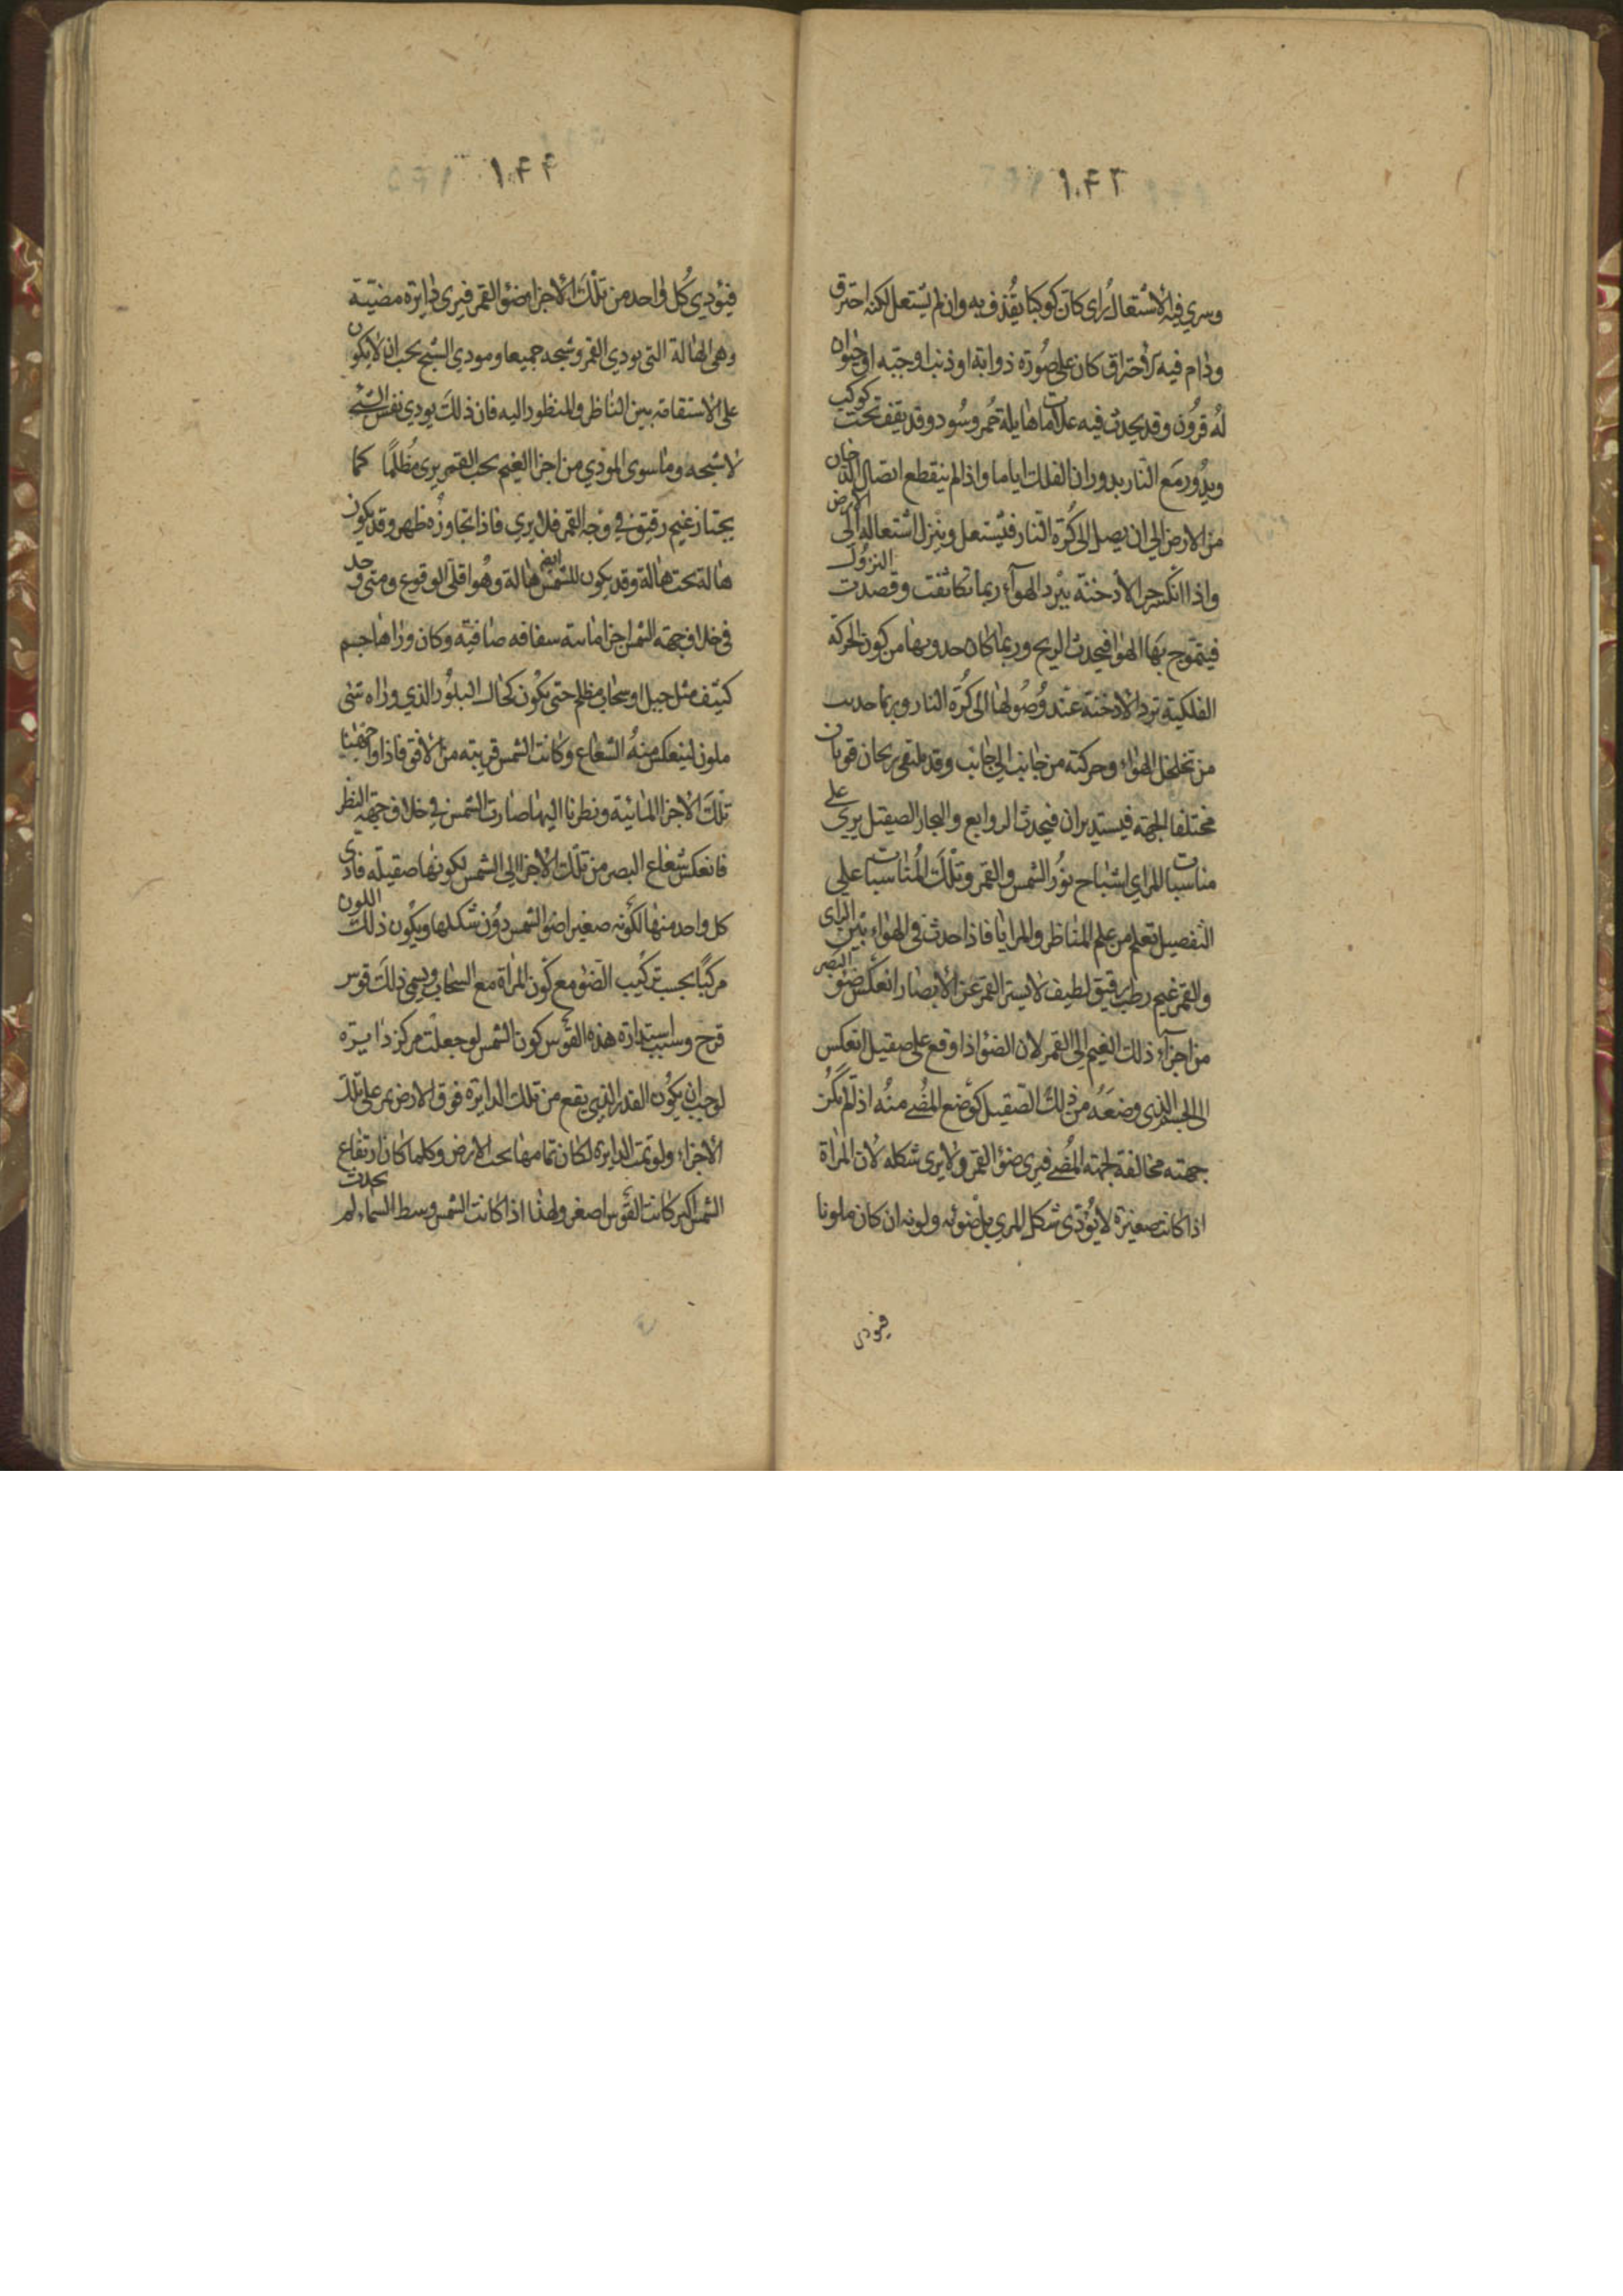 ١٠٤٣
وسري فيه الاشتعال رای كان كوكبا يقذف به وان لم يشتعل لكنه احترق
ودام فيه الاحتراق كان على صورة ذوابة او ذنب او حية او حيوان
له قرون وقد يحدث فيه علامات هايلة حمر وسود وقد يقف تحت كوكب
ويدور مع النار بدوران الفلك اياما واذا لم ينقطع اتصال الدخان
من الارض الى ان يصل الى كرة النار فيشتعل وينزل اشتعاله الى الارض
واذا انكسر حر الادخنة ببرد الهوآء ربما تكاثفت وقصدت النزول
فيتموج بها الهوا فيحدث الريح وربما كان حدوثها من كون الحركة
الفلكية ترد الادخنة عند وصولها الى كرة النار وربما حدثت
من تخلخل الهواء وحركته من جانب الى جانب وقد يلتقى ريحان قويان
مختلفا الجهة فيستديران فيحدث الزوابع والبخار الصقيل يرى على
مناسبات المراي اشباح نور الشمس والقمر وتلك المناسبات على
التفصيل تعلم من علم المناظر والمرايا فاذا حدث في الهواء بين الراى
والقمر غيم رطب رقيق لطيف لا يستر القمر عن الابصار انعكس ضوء البصر
من اجزآء ذلك الغيم الى القمر لان الضوء اذا وقع على صقيل انعكس
الى الجسم الذى وضعه من ذلك الصقيل كوضع المضے منه اذا لم تكن
جهته مخالفة لجهة المضے فيرى ضوء القمر ولا يرى شكله لان المراة
اذا كانت صغيرة لا يؤدى شكل المرى بل ضوئه ولونه ان كان ملونا
فيؤدي
١٠٤٤
فيؤدي كل واحد من تلك الاجزا ضوء القمر فيرى دايرة مضيئة
وهى الهالة التى يودي القمر وشبحه جميعا ومودي الشبح يجب ان لا يكون
على الاستقامة بين الناظر والمنظور اليه فان ذلك يودي نفس الشئ
لا شبحه وما سوى المودي من اجزا الغيم تحت القمر يرى مظلمًا كما
يجتاز غيم رقيق في وجه القمر فلا يرى فاذا تجاوزه ظهر وقد يكون
هالة تحت هالة وقد يكون للشمس ايضا هالة وهوا قلى الوقوع ومتى وجد
في خلاف جهة الشمس اجزا مائية شفافه صافية وكان وراها جسم
كثيف مثل جبل او سحاب مظلم حتى يكون كحال البلور الذي وراه شى
ملون لينعكس منه الشعاع وكانت الشمس قريبة من الافق فاذا واجهنا
تلك الاجزا المائية ونظرنا اليها صارت الشمس في خلاف جهة النظر
فانعكس شعاع البصر من تلك الاجزا الى الشمس لكونها صقيلة فادى
كل واحد منها لكونه صغيرا ضوء الشمس دون شكلها ويكون ذلك اللون
مركبًا بحسب تركيب الضوء مع كون المراة مع السحاب ويسمى ذلك قوس
قزح وسبب استدارة هذه القوس كون الشمس لو جعلت مركز دايرة
لوجب ان يكون القدر الذي يقع من تلك الدايرة فوق الارض يمر على تلك
الاجزاء ولو تمت الدايرة لكان تمامها تحت الارض وكلما كان ارتفاع
الشمس اكبر كانت القوس اصغر ولهذا اذا كانت الشمس وسط السماء لم يحدث